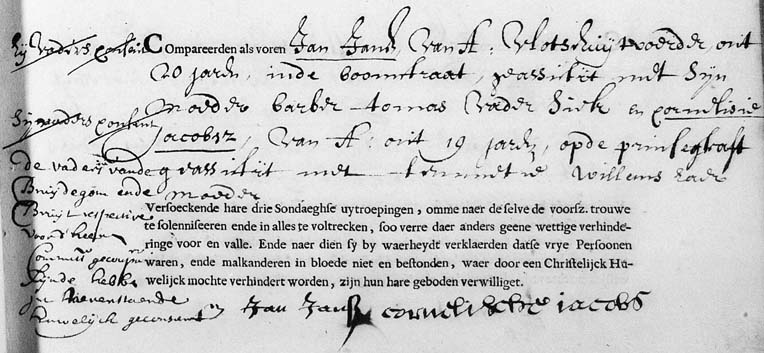 Compareerden als voren Jan Jansz, van A: vlotschuytvoerder, out
20 jaren, inde boomstraat, geassisteert met sijn
moeder barber tomas vader Siek en cornelisie
jacobsz, van A: out 19 jaren, opde prinsegraft
geassisteert met Willems haer
moeder
Versoeckende hare drie Sondaeghse uytroepingen, omme naer de selve de voorsz. trouwe
te solemniseeren ende in alles te voltrecken, soo verre daer anders geene wettige verhinde-
ringe voor en valle. Ende naer dien sy by waerheydt verklaerden datse vrye Persoonen
waren, ende malkanderen in bloede niet en bestonden, waer door een Christelijck Hu-
welijck mochte verhindert worden, zijn hun hare geboden verwilliget.
Jan Jansz cornelische jacobs
hij vaders consent
sij vaders consent
de vaders vande
Bruydegom ende
Bruyt respective
voor heeren
Commiss
sijnde hebbe
int bovenstaende
huwelijck geconsent